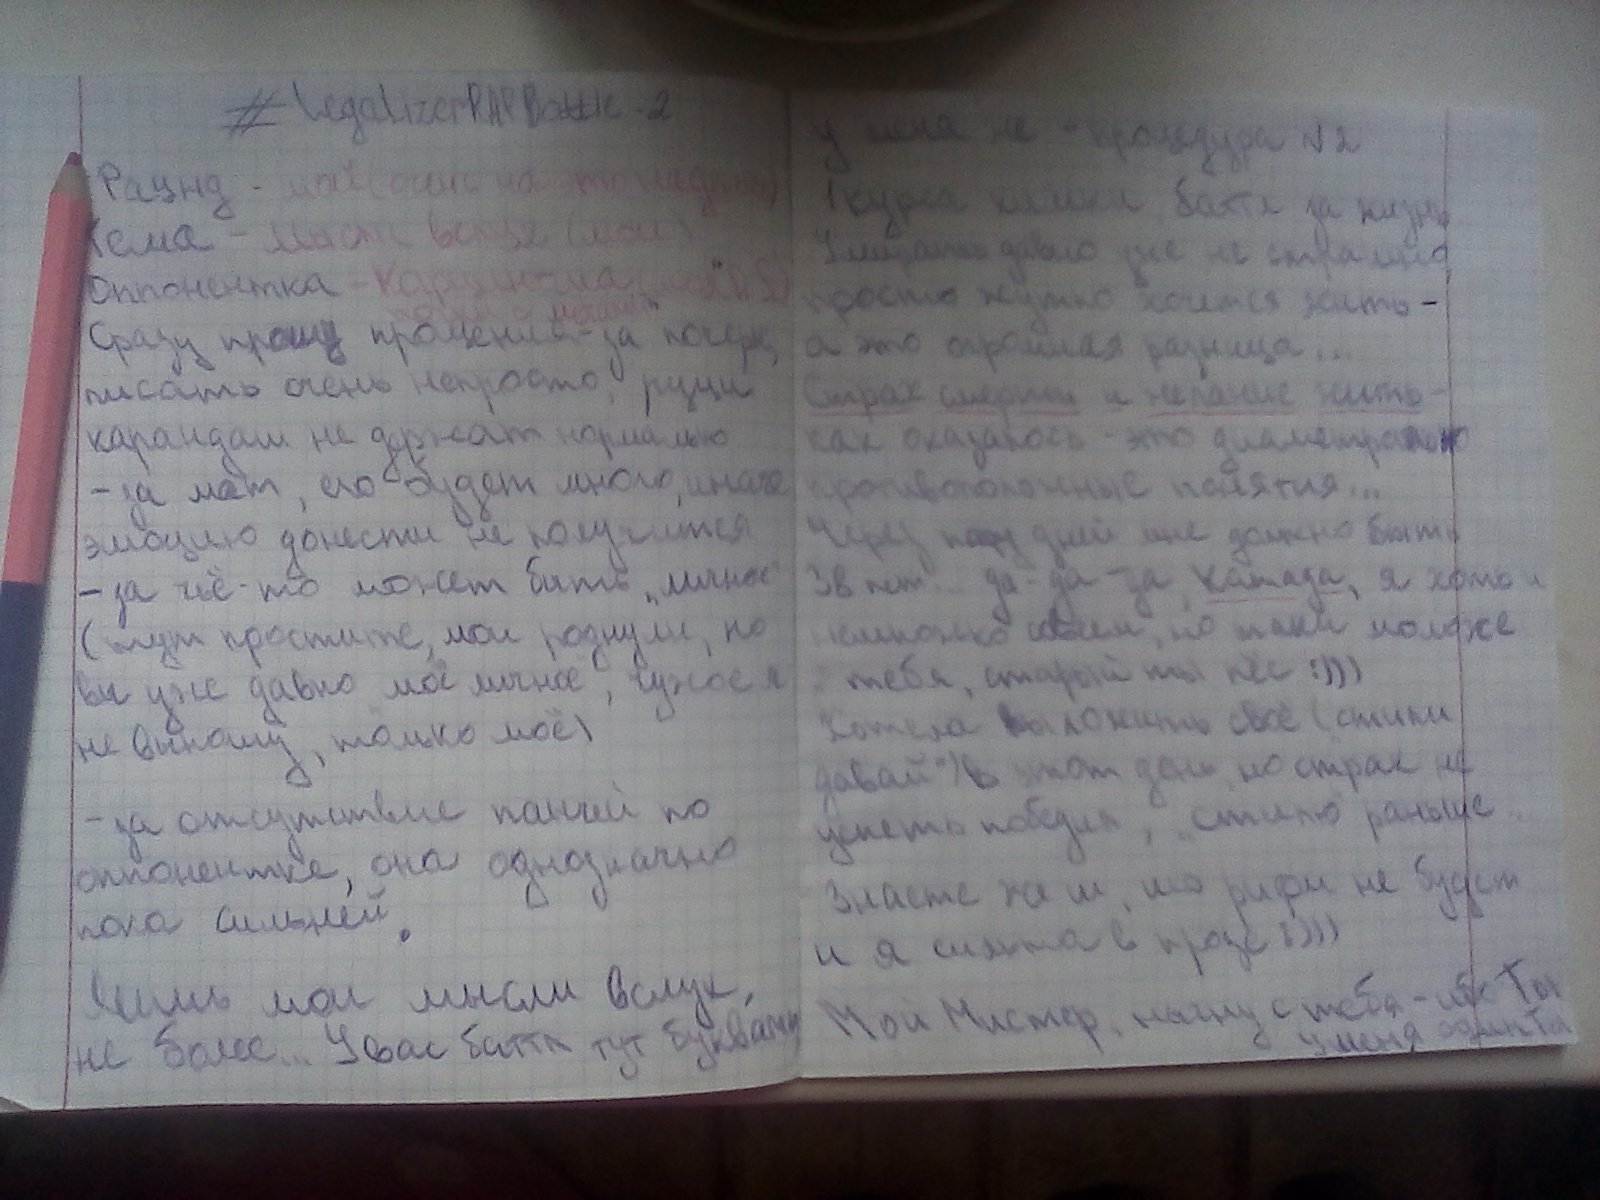 #LegalizerRAPBattle-2
Раунд - мой на
Тема - Мысли вслух (мои)
Оппонентка - Карцинома
Сразу прошу прощения - за почерк,
писать очень непросто, руки
карандаш не держат нормально
- за мат, его будет много, иначе
эмоцию донести не получится
- за чьё-то может быть "личное"
(тут простите, мои роднули, но
вы уже давно моё личное, чужое я
не выношу, только моё)
- за отсутствие панчей по
оппонентке, она однозначно
пока сильней.
Лишь мои мысли вслух,
не более... У вас баттл тут
у меня же - процедура №2
курса химии, баттл за жизнь
Умирать давно уже не страшно,
просто жутко хочется жить -
а это огромная разница...
Страх смерти и желание жить -
как оказалось - это диаметрально
противоположные понятия...
Через пару дней мне должно быть
38 лет... да-да-да, Катада, я хоть и
немножко совсем, но таки моложе
тебя, старый ты пёс :)))
Хотела выложить своё (стили
давай") в этот день, но страх не
успеть победил, раньше..
Знаете же и, что рифм не будет
и я сильна в прозе :)))
Мой Мистер, начну с тебя - ибо Ты
у меня один Ты